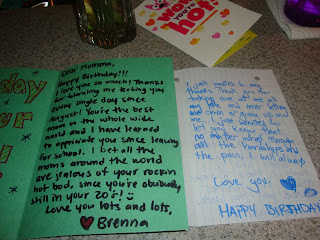 you're
hot!
day
Dear Momma,
Happy Birthday!!!
I love you so much! Thanks
for blasting me texting you
every single day since
August! You're the best
mom in the whole wide
world and I have learned
to appriciate you since leaving
for school. I bet all the
moms around the world
are jealous of your rockin
hot bod, since you're obviously
still in your 20's! :)
Love you lots and lots,
Brenna
I just wanted to say
thanks. Thank you for
taking care of me all
my life and never letting
me down or giving up on
me. I just wanted to
let you know that
no matter what through
all the hardships and
the pain I will always
Love you.
HAPPY BIRTHDAY